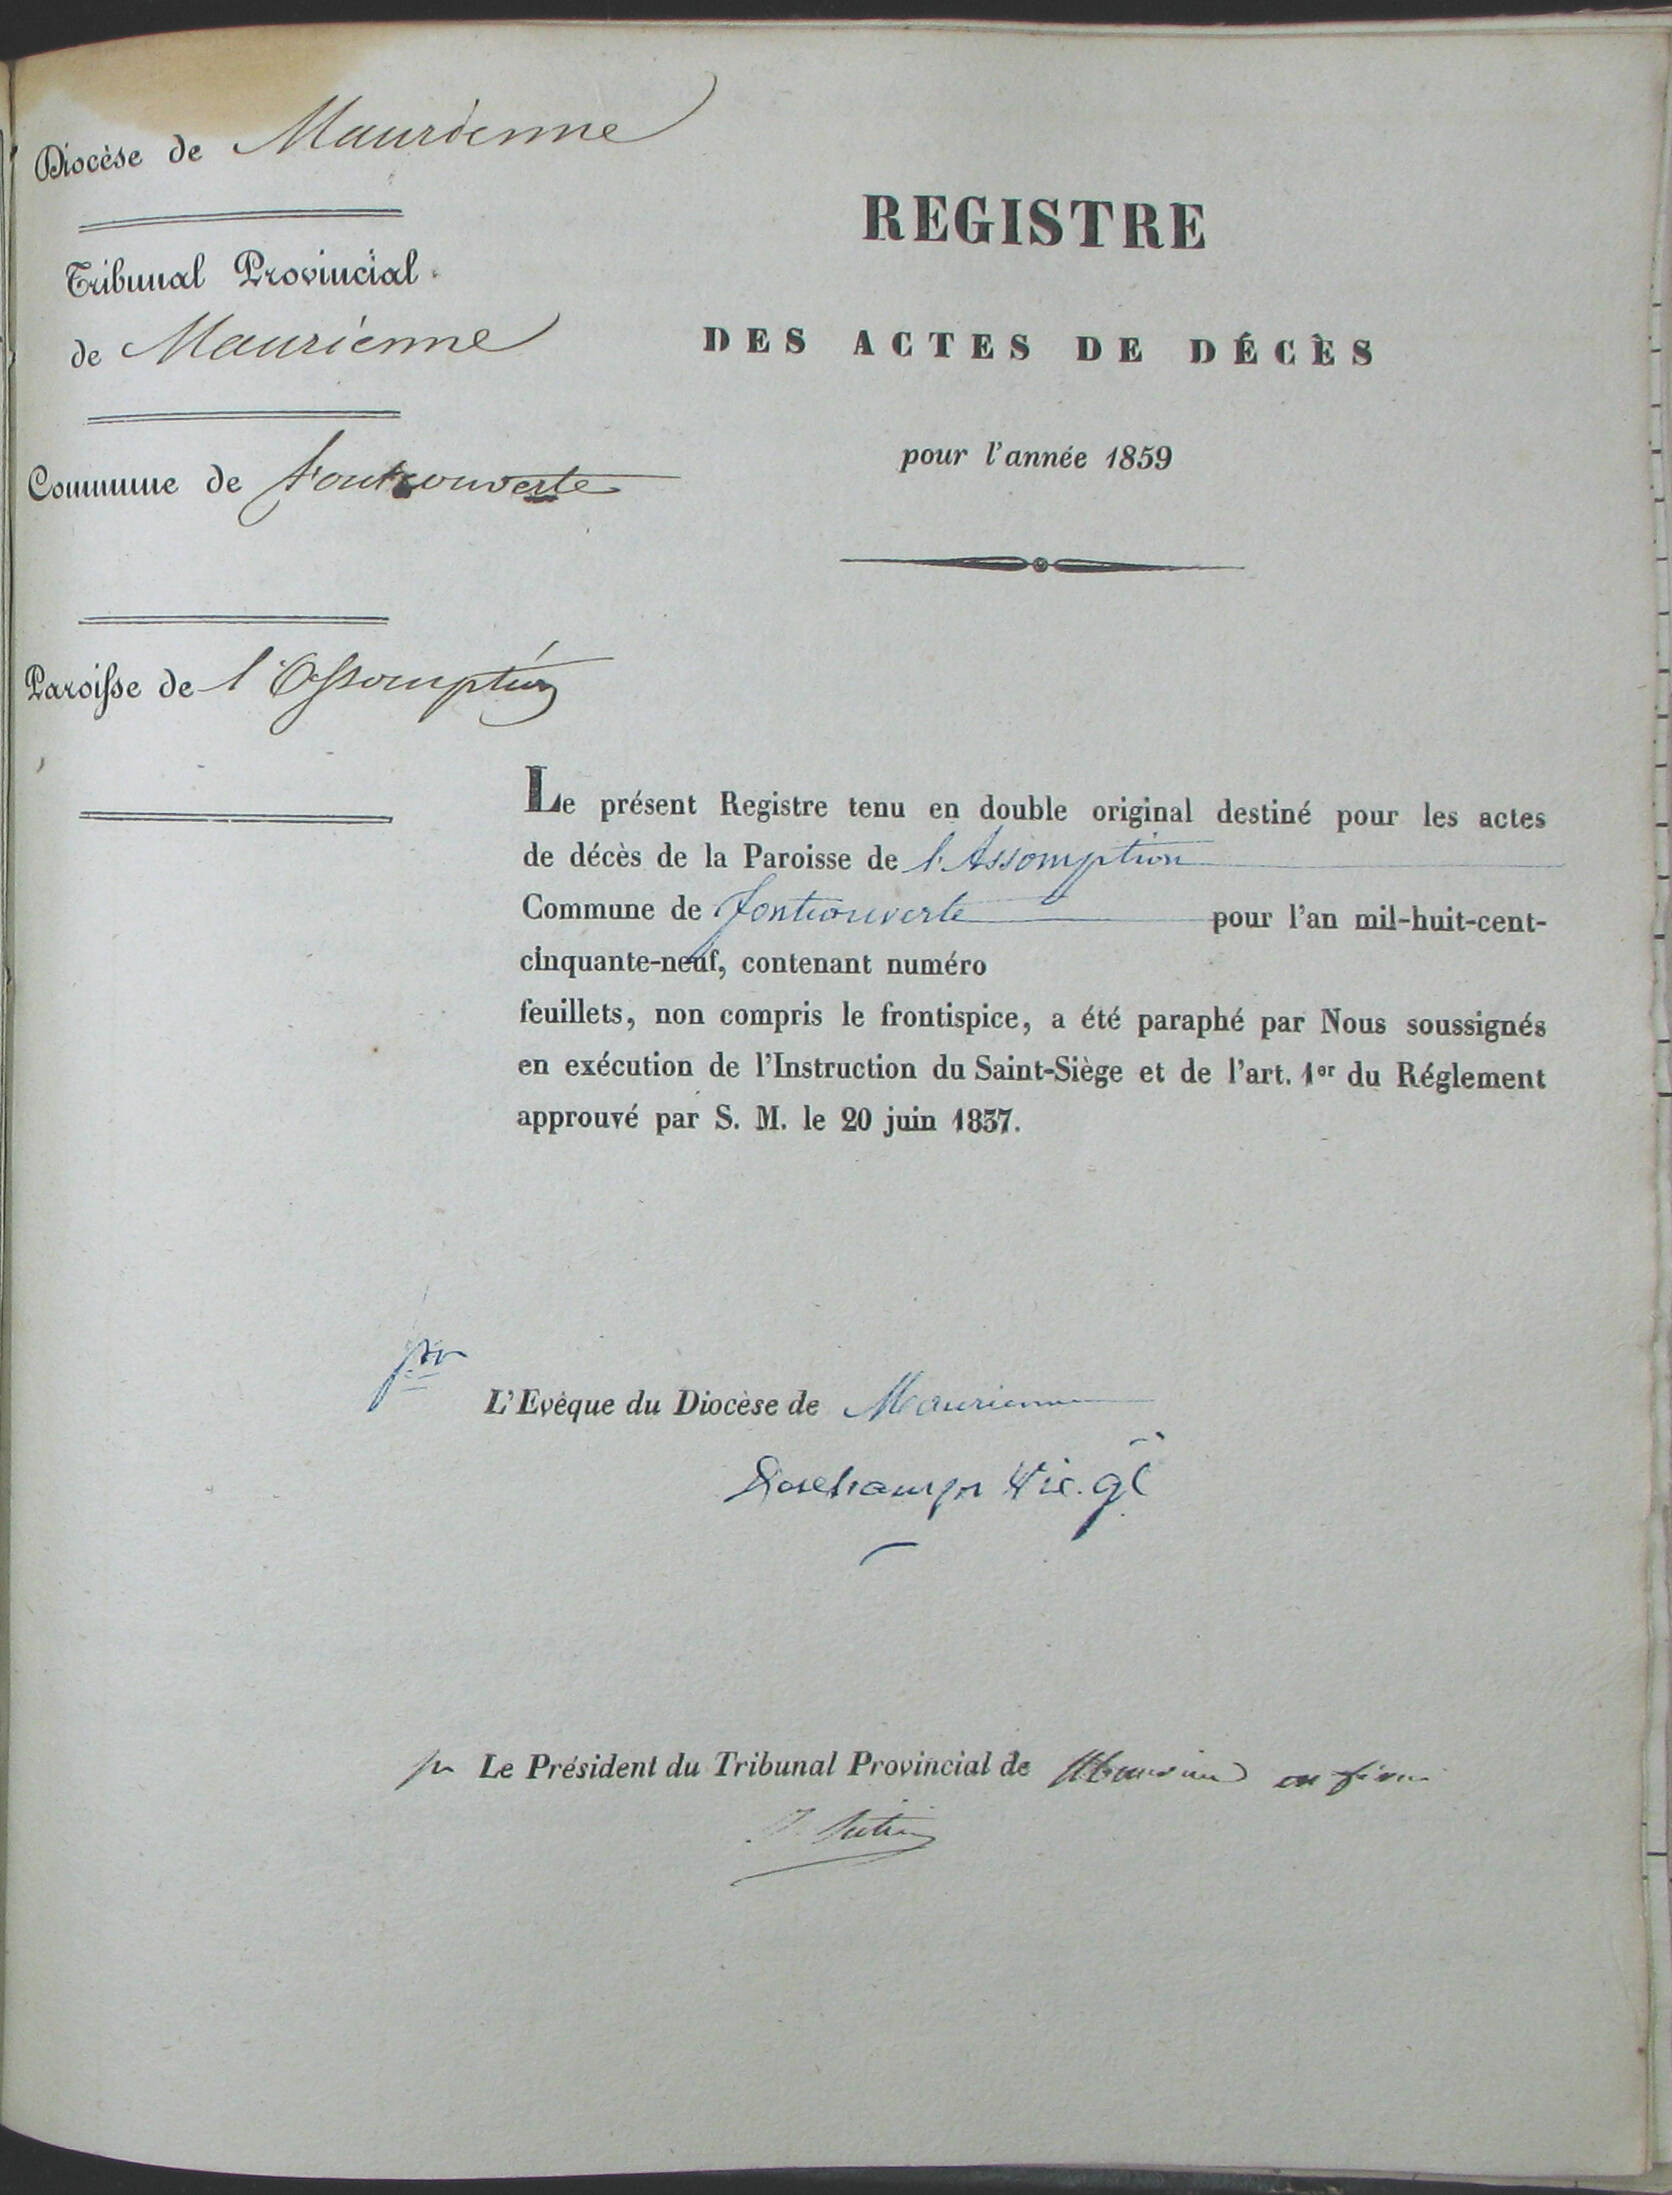 Diocèse de Maurienne
Tribunal Provincial
de Maurienne
Commune de Fontcouverte
Paroisse de l'Assomption
REGISTRE
DES ACTES DE DÉCÈS
pour l'année 1859
Le présent Registre tenu en double original destiné pour les actes
de décès de la Paroisse de l'Assomption
Commune de fontcouverte pour l'an mil-huit-cent-
cinquante-neuf, contenant numéro
feuillets, non compris le frontispice, a été paraphé par Nous soussignés
en exécution de l'Instruction du Saint-Siège et de l'art. 1er du Réglement
approuvé par S. M. le 20 juin 1837.
pr
L'Evêque du Diocèse de Maurienne
Deschamps Vic. gl
pr Le Président du Tribunal Provincial de Maurienne